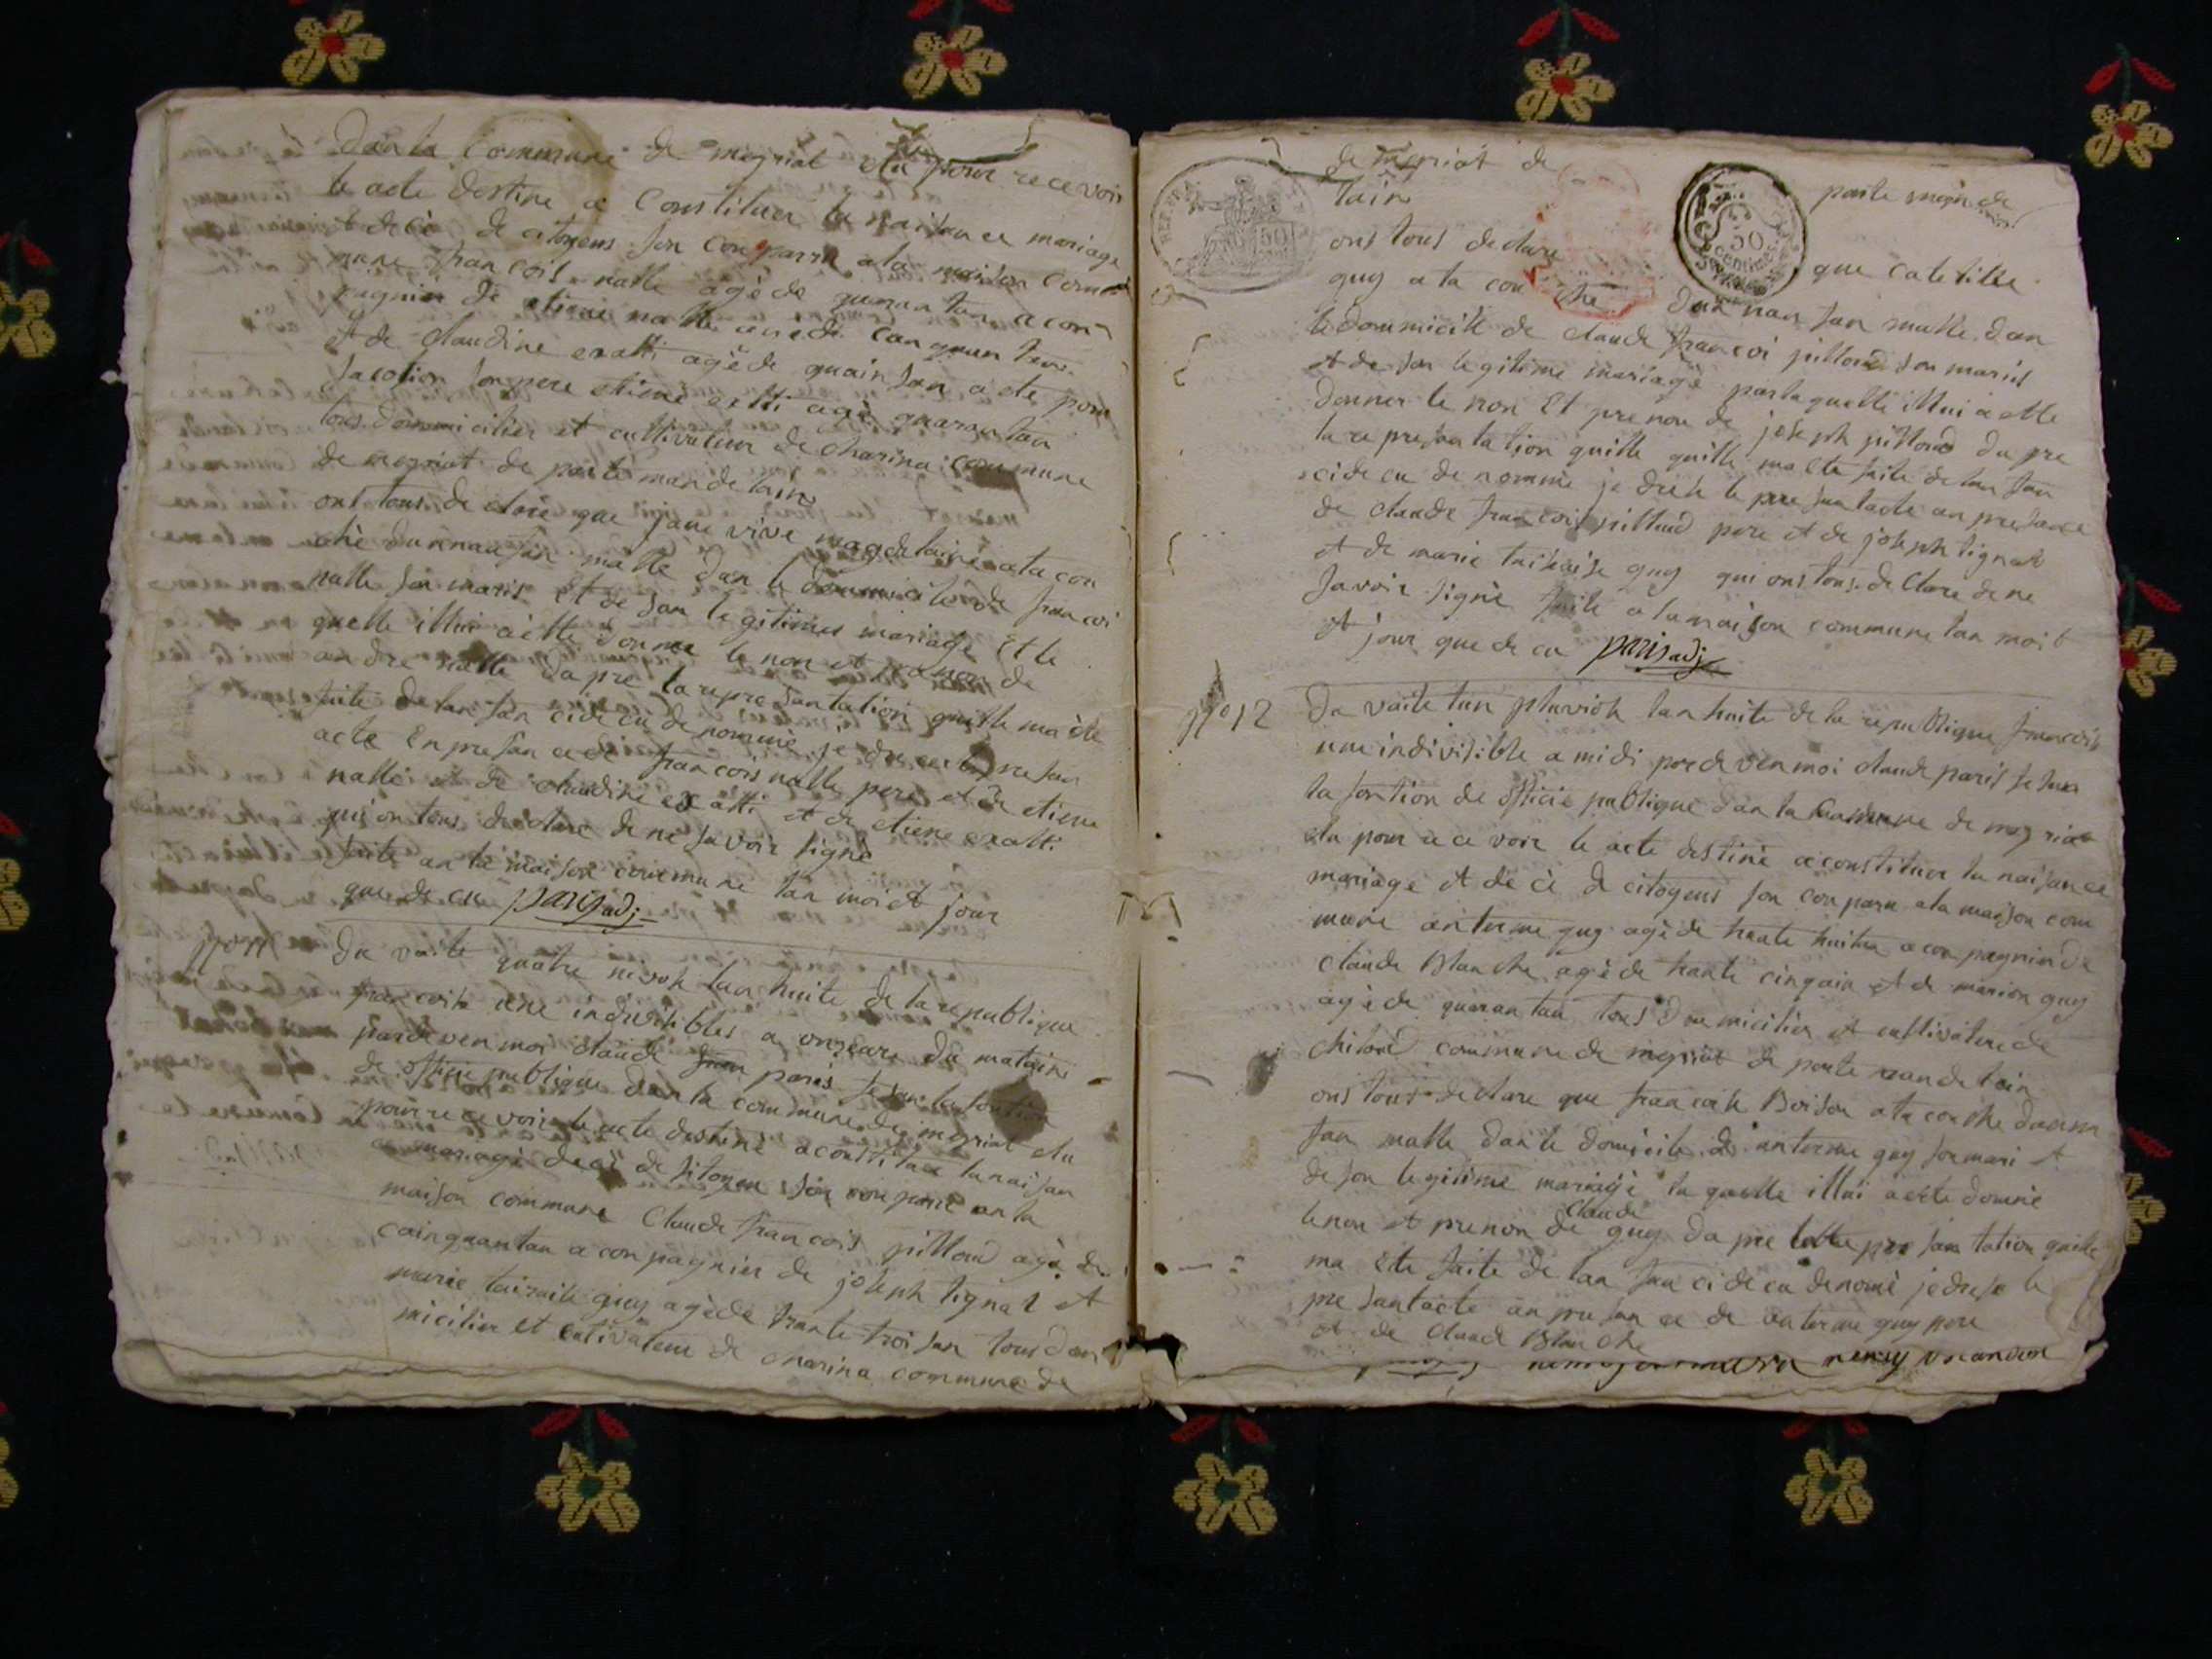 Dan la Commune de mesriat elu pour recevoir
le acte destine a Constituer la naisance mariage
et decè de citoyens son conparru a la maison comu
nune francois nalle agè de quarantan acon
pagnier de etiene nalle
et de claudine exatti agè de quainsan a ete pour
son pere etiene exatti agè quarantan
tous dommicilier et cultivateur de charina commune
de mesriat de porte man de lain
ons tous de clare que jane vive magdelaine ata con
chè dun nansan malle dan le dommicile de francoi
nalle son maris et de son legitimes mariage Et le
quelle illui a ette donner le non et prenon de
andre nalle da pre la represantation quille ma ète
faite de lan fan ci de cu de nommè je dreser le presan
acte en presance de francois nalle pere et de etiene
nalle et de claudine exatti et de etiene exatti
qui on tous de clare de ne savoir signè
faite an la maison commune lan moi et jour
que de cu paris adj
N° 11 Du vaite quatre nivose lan huite de la republique
francoise une indivisibles a onzeure du mataine
par de ven moi claude paris fesan la fontion
de officie publique dan la commune de mesriat elu
pour recevoir le acte destinè a constituer la naisan
ce mariage decè de sitoyen son conparu an la
maison commune Claude francois pilloud agè de
cainquantan a conpagnier de joseph tignat et
marie guy agè de trante troi san tous dom
micilier et cultivateur de charina commune de
de mesriat de porte man de
lain
ons tous declare que catetille
guy a ta con che dun nan fan malle dan
le dommicile de claude francoi pilloud son maris
et de son legitime mariage par la quelle illui a ette
donner le non Et prenon de joseph pilloud da pre
la represantation quille quille ma ete faite de lan fan
ci de cu de nommè je drese le presan tacte an presance
de claude francois pilloud pere et de joseph tignat
et de marie guy qui ons tous de clare de ne
savoir signè faite a la maison commune lan mois
et jour que de cu paris adj
N° 12 Du vaite tun pluviose lan huite de la republique francoise
une indivisible a midi par de ven moi claude paris fesan
la fontion de officie publique dan la Commune de mesriat
elu pour re ce voir le acte destinè a constituer la naisance
mariage et de cè de citoyens son conparu a la maison com
mune anterme guy agè de trante huitan a con pagnier de
claude Blanche agè de trante cinqain et de marion guy
agè de quarantan tous dommicilier et cultivateur de
chiloud commune de mesriat de porte man de lain
ons tous declare que francoise Boison ata conche dun nan
fan malle dan le domicile de anterme guy son mari et
de son legitime mariage la quelle illui a ette donnè
le non et prenon de claude guy da pre la represantation quille
ma ete faite de lan fan ci de cu denomè je drese le
presantacte an presan ce de anterme guy pere
et de claude Blanche